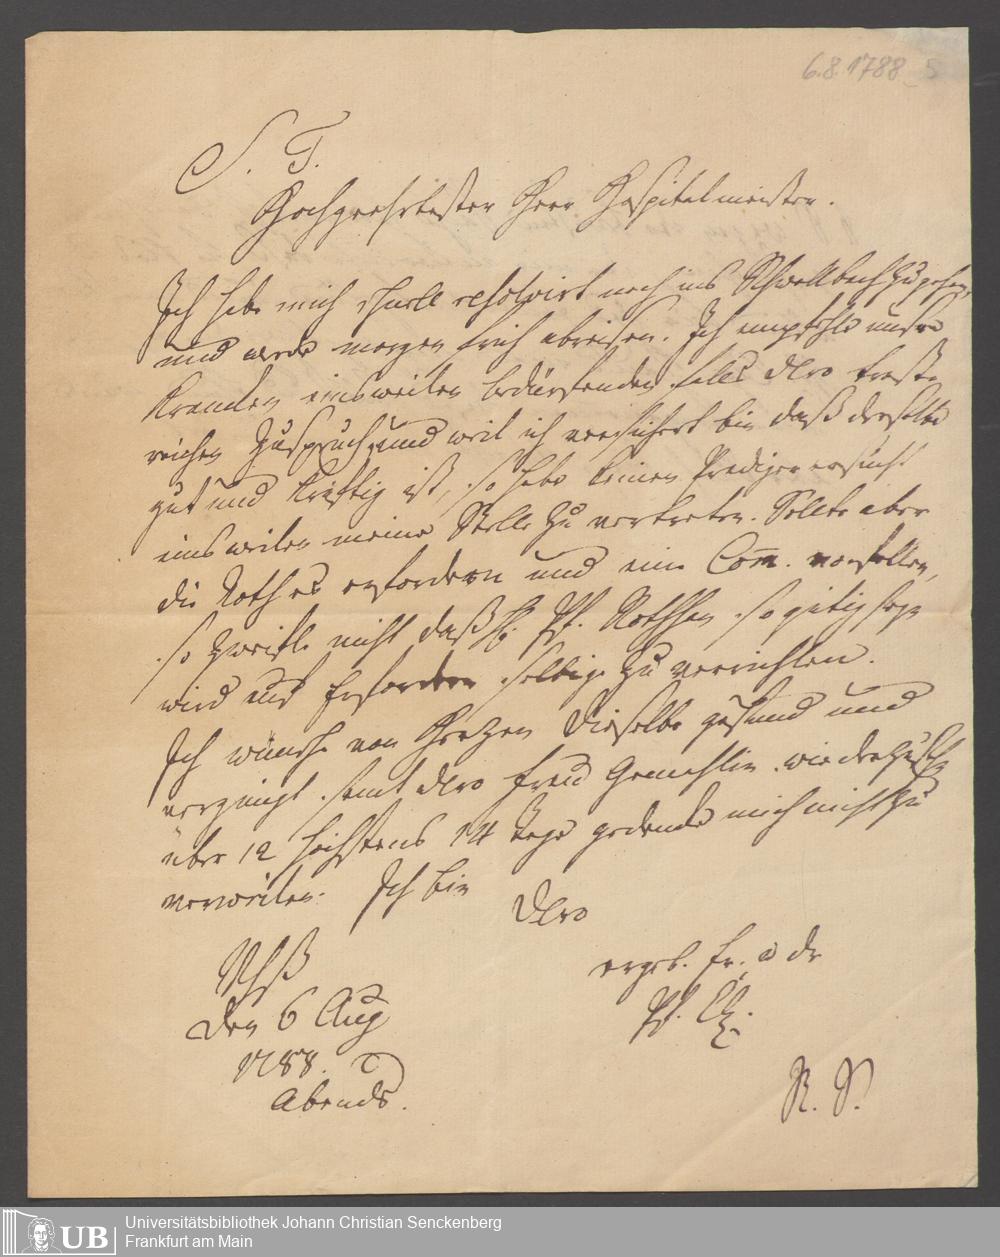 6.8.1788 5
S. T.
Hochgeehrtester Herr Hospitalmeister.
Ich habe mich schnell resolvirt noch ins Schwallbach zu gehen,
und werde morgen früh abreisen. Ich empfehle unsre
Kranken einsweilen bedürfenden falls Dero trost-
reichen Zuspruch, und weil ich versichert bin daß derselbe
gut und kräftig ist, so habe keinen Prediger ersucht
einsweilen meine Stelle zu vertreten. Sollte aber
die Noth es erfordern und eine Com̅. vorfallen,
so zweifle nicht daß H. Pf. so gütig seyn
wird auf Erfordern selbige zu verrichten.
Ich wünsche von Herzen Dieselbe gesund und
vergnügt samt Dero Gemahlin wiederzusehn
über 12 höchstens 14 Tage gedenke mich nicht zu
verweilen. Ich bin
Dero
ergeb. Fr. u dr
Pf.
den 6 Aug
1788.
Abends.
N. S.
UB
Universitätsbibliothek Johann Christian Senckenberg
Frankfurt am Main